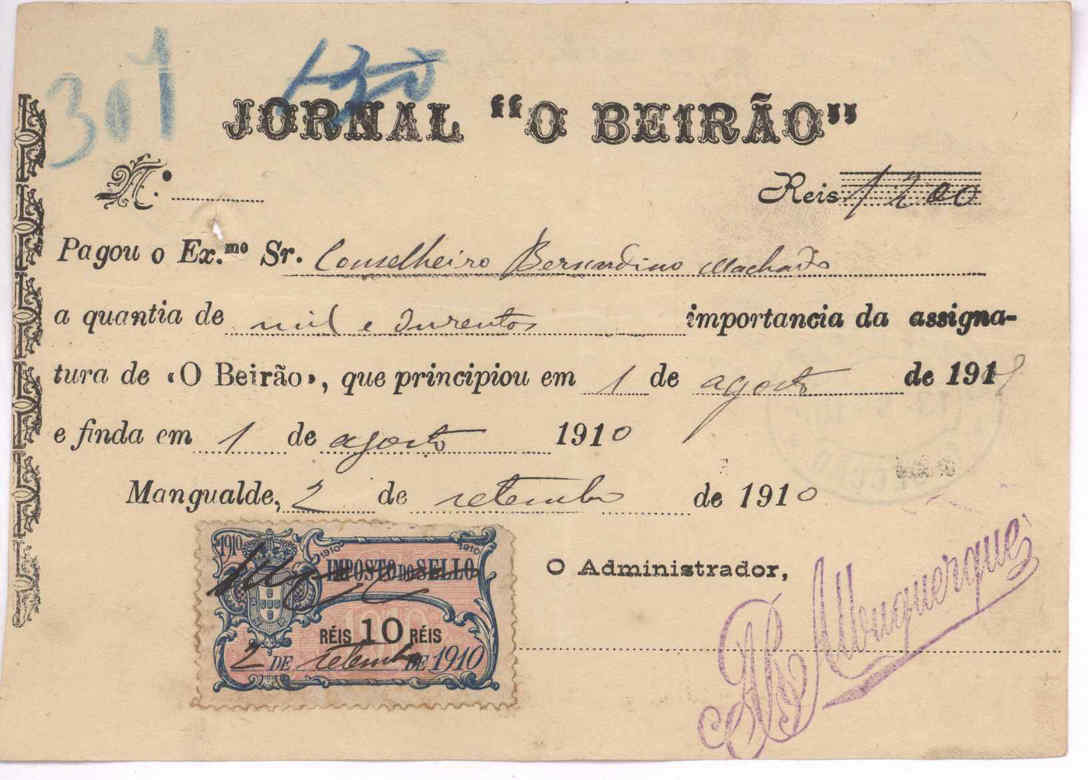 301
JORNAL "O BEIRÃO"
N.º
Reis 1200
Pagou o Ex.mo Sr. Conselheiro Bernardino Machado
a quantia de mil e durentos importancia da assigna-
tura de «O Beirão», que principiou em 1 de agosto de 1919
e finda em 1 de agosto 1910
Mangualde, 2 de setembro de 1910
1910 1910 1910
IMPOSTO DO SELLO
RÉIS 10 RÉIS
2 DE setembro DE 1910
O Administrador,
Albuquerque